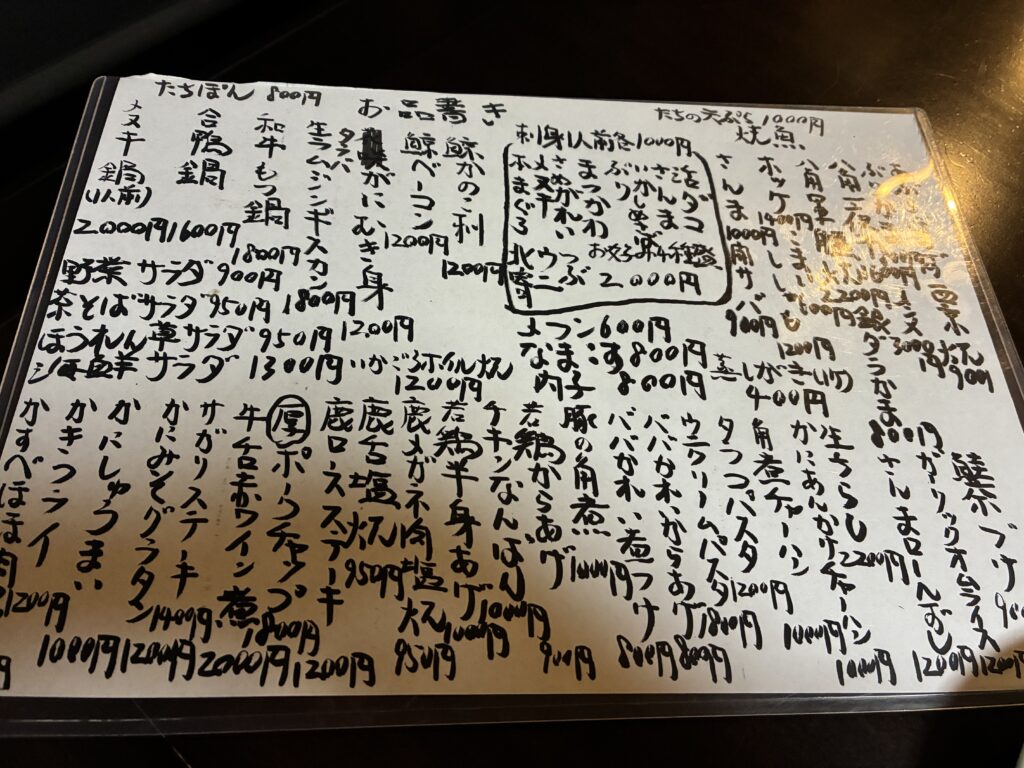 たちぽん 800円
お品書き
たちの天ぷら 1000円
焼魚
刺身1人前各1000円
活ダコ
さんま
いかしめさば
ぶり
まつかわ
さめがれい
メヌキ
本まぐろ
おまかせ刺身4種盛
2000円
つぶ
ウニ
北寄
鯨かのこ刺 1200円
鯨ベーコン 1200円
タラバがにむき身 1200円
生ラムジンギスカン 1800円
和牛もつ鍋 1800円
合鴨鍋 1600円
メヌキ鍋(1人前) 2000円
野菜サラダ 900円
茶そばサラダ 950円
ほうれん草サラダ 950円
海鮮サラダ 1300円
いかごろホイル焼 1200円
さんま 1000円
角サバ 900円
ホッケ 1400円
銀ダラかま 800円
メフン 600円
なまこす 800円
肉 800円
蒸しがき
400円
鮭茶づけ
ガーリックオムライス 1200円
さんまローんずし 1200円
生ちらし 2200円
かにあんかけチャーハン 1000円
角煮チャーハン 1000円
たつパスタ 1200円
ウニクリームパスタ 1800円
ババがれいからあげ 800円
ババがれい煮つけ 800円
豚の角煮 1000円
若鶏からあげ 900円
チキンなんばん 1000円
若鶏半身あげ 1000円
鹿メガネ肉塩焼 950円
鹿舌塩焼 950円
鹿ロースステーキ 1200円
厚ポークチャップ 1800円
牛舌赤ワイン煮 2000円
サガリステーキ 1400円
かにみそグラタン 1200円
かにしゅうまい 1000円
かきフライ 1200円
かすべほほ肉